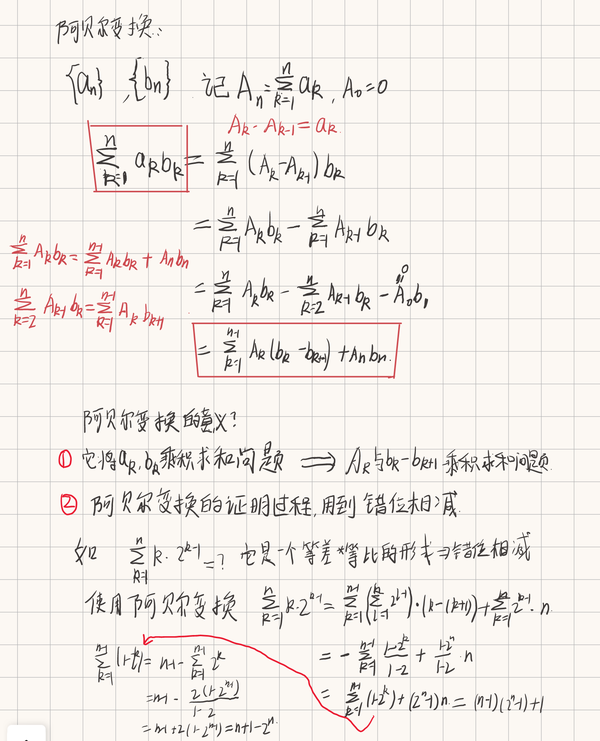 阿贝尔变换:
{aₙ}, {bₙ} 记 Aₙ = ∑_{k=1}^{n} aₖ, A₀=0
Aₖ - Aₖ₋₁ = aₖ
∑_{k=1}^{n} aₖbₖ = ∑_{k=1}^{n} (Aₖ-Aₖ₋₁)bₖ
= ∑_{k=1}^{n} Aₖbₖ - ∑_{k=1}^{n} Aₖ₋₁bₖ
∑_{k=1}^{n} Aₖbₖ = ∑_{k=1}^{n-1} Aₖbₖ + Aₙbₙ
= ∑_{k=1}^{n} Aₖbₖ - ∑_{k=2}^{n} Aₖ₋₁bₖ - A₀b₁
0
∑_{k=2}^{n} Aₖ₋₁bₖ = ∑_{k=1}^{n-1} Aₖbₖ₊₁
= ∑_{k=1}^{n-1} Aₖ(bₖ-bₖ₊₁)+Aₙbₙ.
阿贝尔变换的意义?
① 它将aₖ,bₖ乘积求和问题 ⟹ Aₖ与bₖ-bₖ₊₁乘积求和问题.
② 阿贝尔变换的证明过程,用到错位相减.
如 ∑_{k=1}^{n} k·2^{k-1} =? 它是一个等差*等比的形式⇒错位相减
使用阿贝尔变换 ∑_{k=1}^{n} k·2^{k-1} = ∑_{k=1}^{n-1} (∑_{i=1}^{k} 2^{i-1})·(k-(k+1)) + ∑_{k=1}^{n} 2^{k-1}·n
= -∑_{k=1}^{n-1} (1-2^k)/(1-2) + (1-2^n)/(1-2)·n
= ∑_{k=1}^{n-1} (1-2^k)+(2^n-1)n = (n-1)(2^n-1)+1
∑_{k=1}^{n-1} (1-2^k) = n-1 - ∑_{k=1}^{n-1} 2^k
= n-1 - 2(1-2^{n-1})/(1-2)
= n-1+2(1-2^{n-1}) = n+1-2^n.